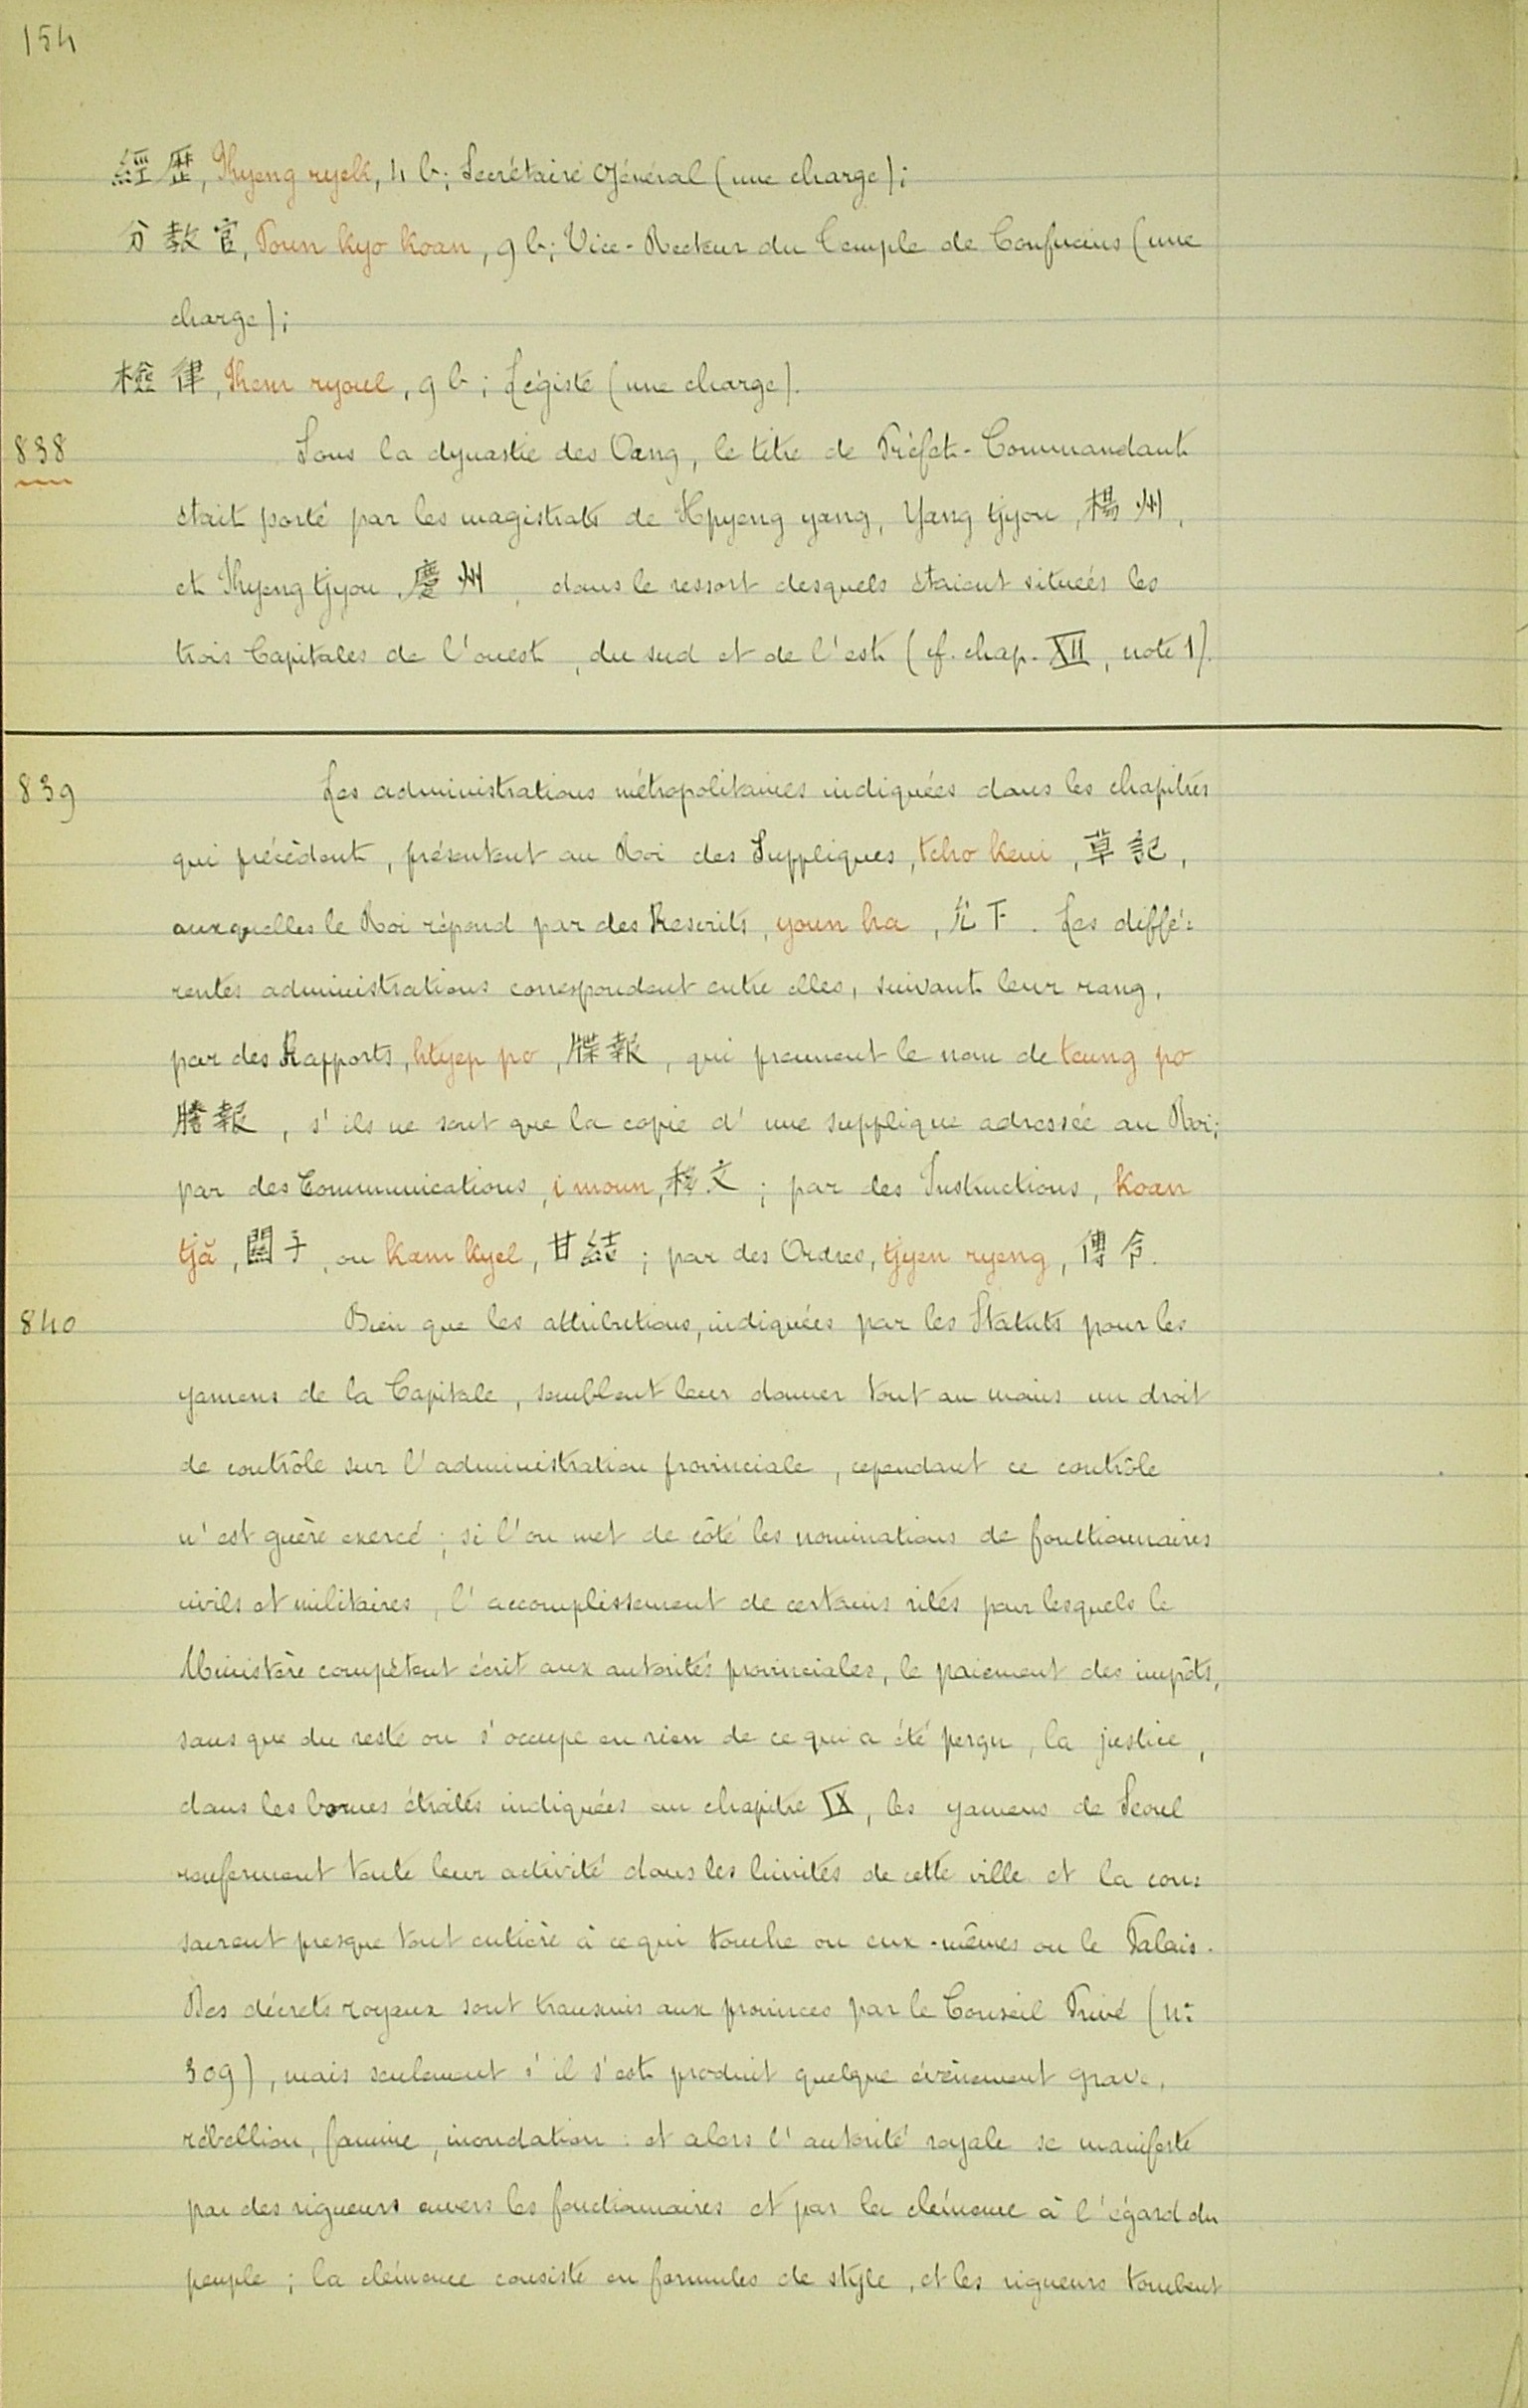 154
經歷, Kyeng ryek, 4 b; Secrétaire Général (une charge);
分教官, Poun kyo koan, 9 b; Vice-Recteur du Temple de Confucius (une
charge);
檢律, Kem ryoul, 9 b; Légiste (une charge).
838 Sous la dynastie des Oang, le titre de Préfet-Commandant
était porté par les magistrats de Hpyeng yang, Yang tjyou, 楊州,
et Kyeng tjyou, 慶州, dans le ressort desquels étaient situées les
trois Capitales de l'ouest, du sud et de l'est (cf. chap. XII, note 1).
839 Les administrations métropolitaines indiquées dans les chapitres
qui précèdent, présentent au Roi des Suppliques, tcho keui, 草記,
auxquelles le Roi répond par des Rescrits, youn ha, 允下. Les diffé=
rentes administrations correspondent entre elles, suivant leur rang,
par des Rapports, htyep po, 牒報, qui prennent le nom de teung po
謄報, s'ils ne sont que la copie d'une supplique adressée au Roi;
par des Communications, i moun, 移文; par des Instructions, koan
tjă, 關子, ou kam kyel, 甘結; par des Ordres, tjyen ryeng, 傳令.
840 Bien que les attributions, indiquées par les Statuts pour les
yamens de la Capitale, semblent leur donner tout au moins un droit
de contrôle sur l'administration provinciale, cependant ce contrôle
n'est guère exercé; si l'on met de côté les nominations de fonctionnaires
civils et militaires, l'accomplissement de certains rites pour lesquels le
Ministère compétent écrit aux autorités provinciales, le paiement des impôts,
sans que du reste on s'occupe en rien de ce qui a été perçu, la justice,
dans les bornes étroites indiquées au chapitre IX, les yamens de Seoul
renferment toute leur activité dans les limites de cette ville et la con=
sacrent presque tout entière à ce qui touche ou eux-mêmes ou le Palais.
Des décrets royaux sont transmis aux provinces par le Conseil Privé (nº
309), mais seulement s'il s'est produit quelque événement grave,
rébellion, famine, inondation: et alors l'autorité royale se manifeste
par des rigueurs envers les fonctionnaires et par la clémence à l'égard du
peuple; la clémence consiste en formules de style, et les rigueurs tombent